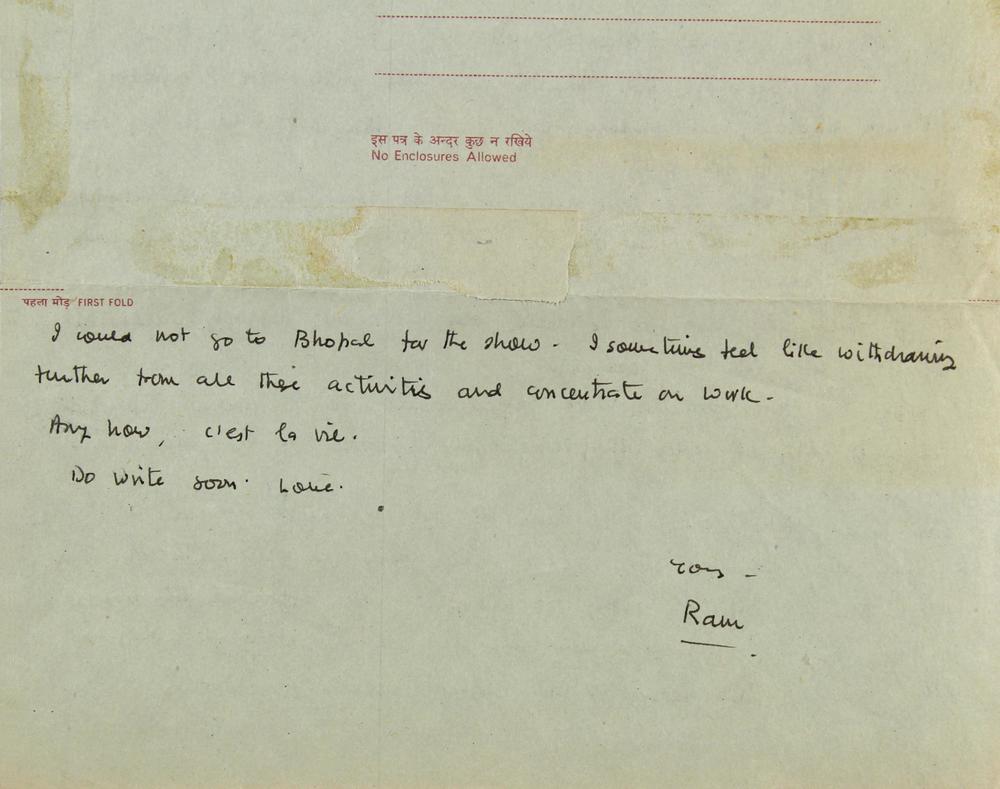 इस पत्र के अन्दर कुछ न रखिये
No Enclosures Allowed
पहला मोड़ FIRST FOLD
I could not go to Bhopal for the show. I sometimes feel like withdrawing
further from all these activities and concentrate on work.
Any how, c'est la vie.
Do write soon. Love.
Ram